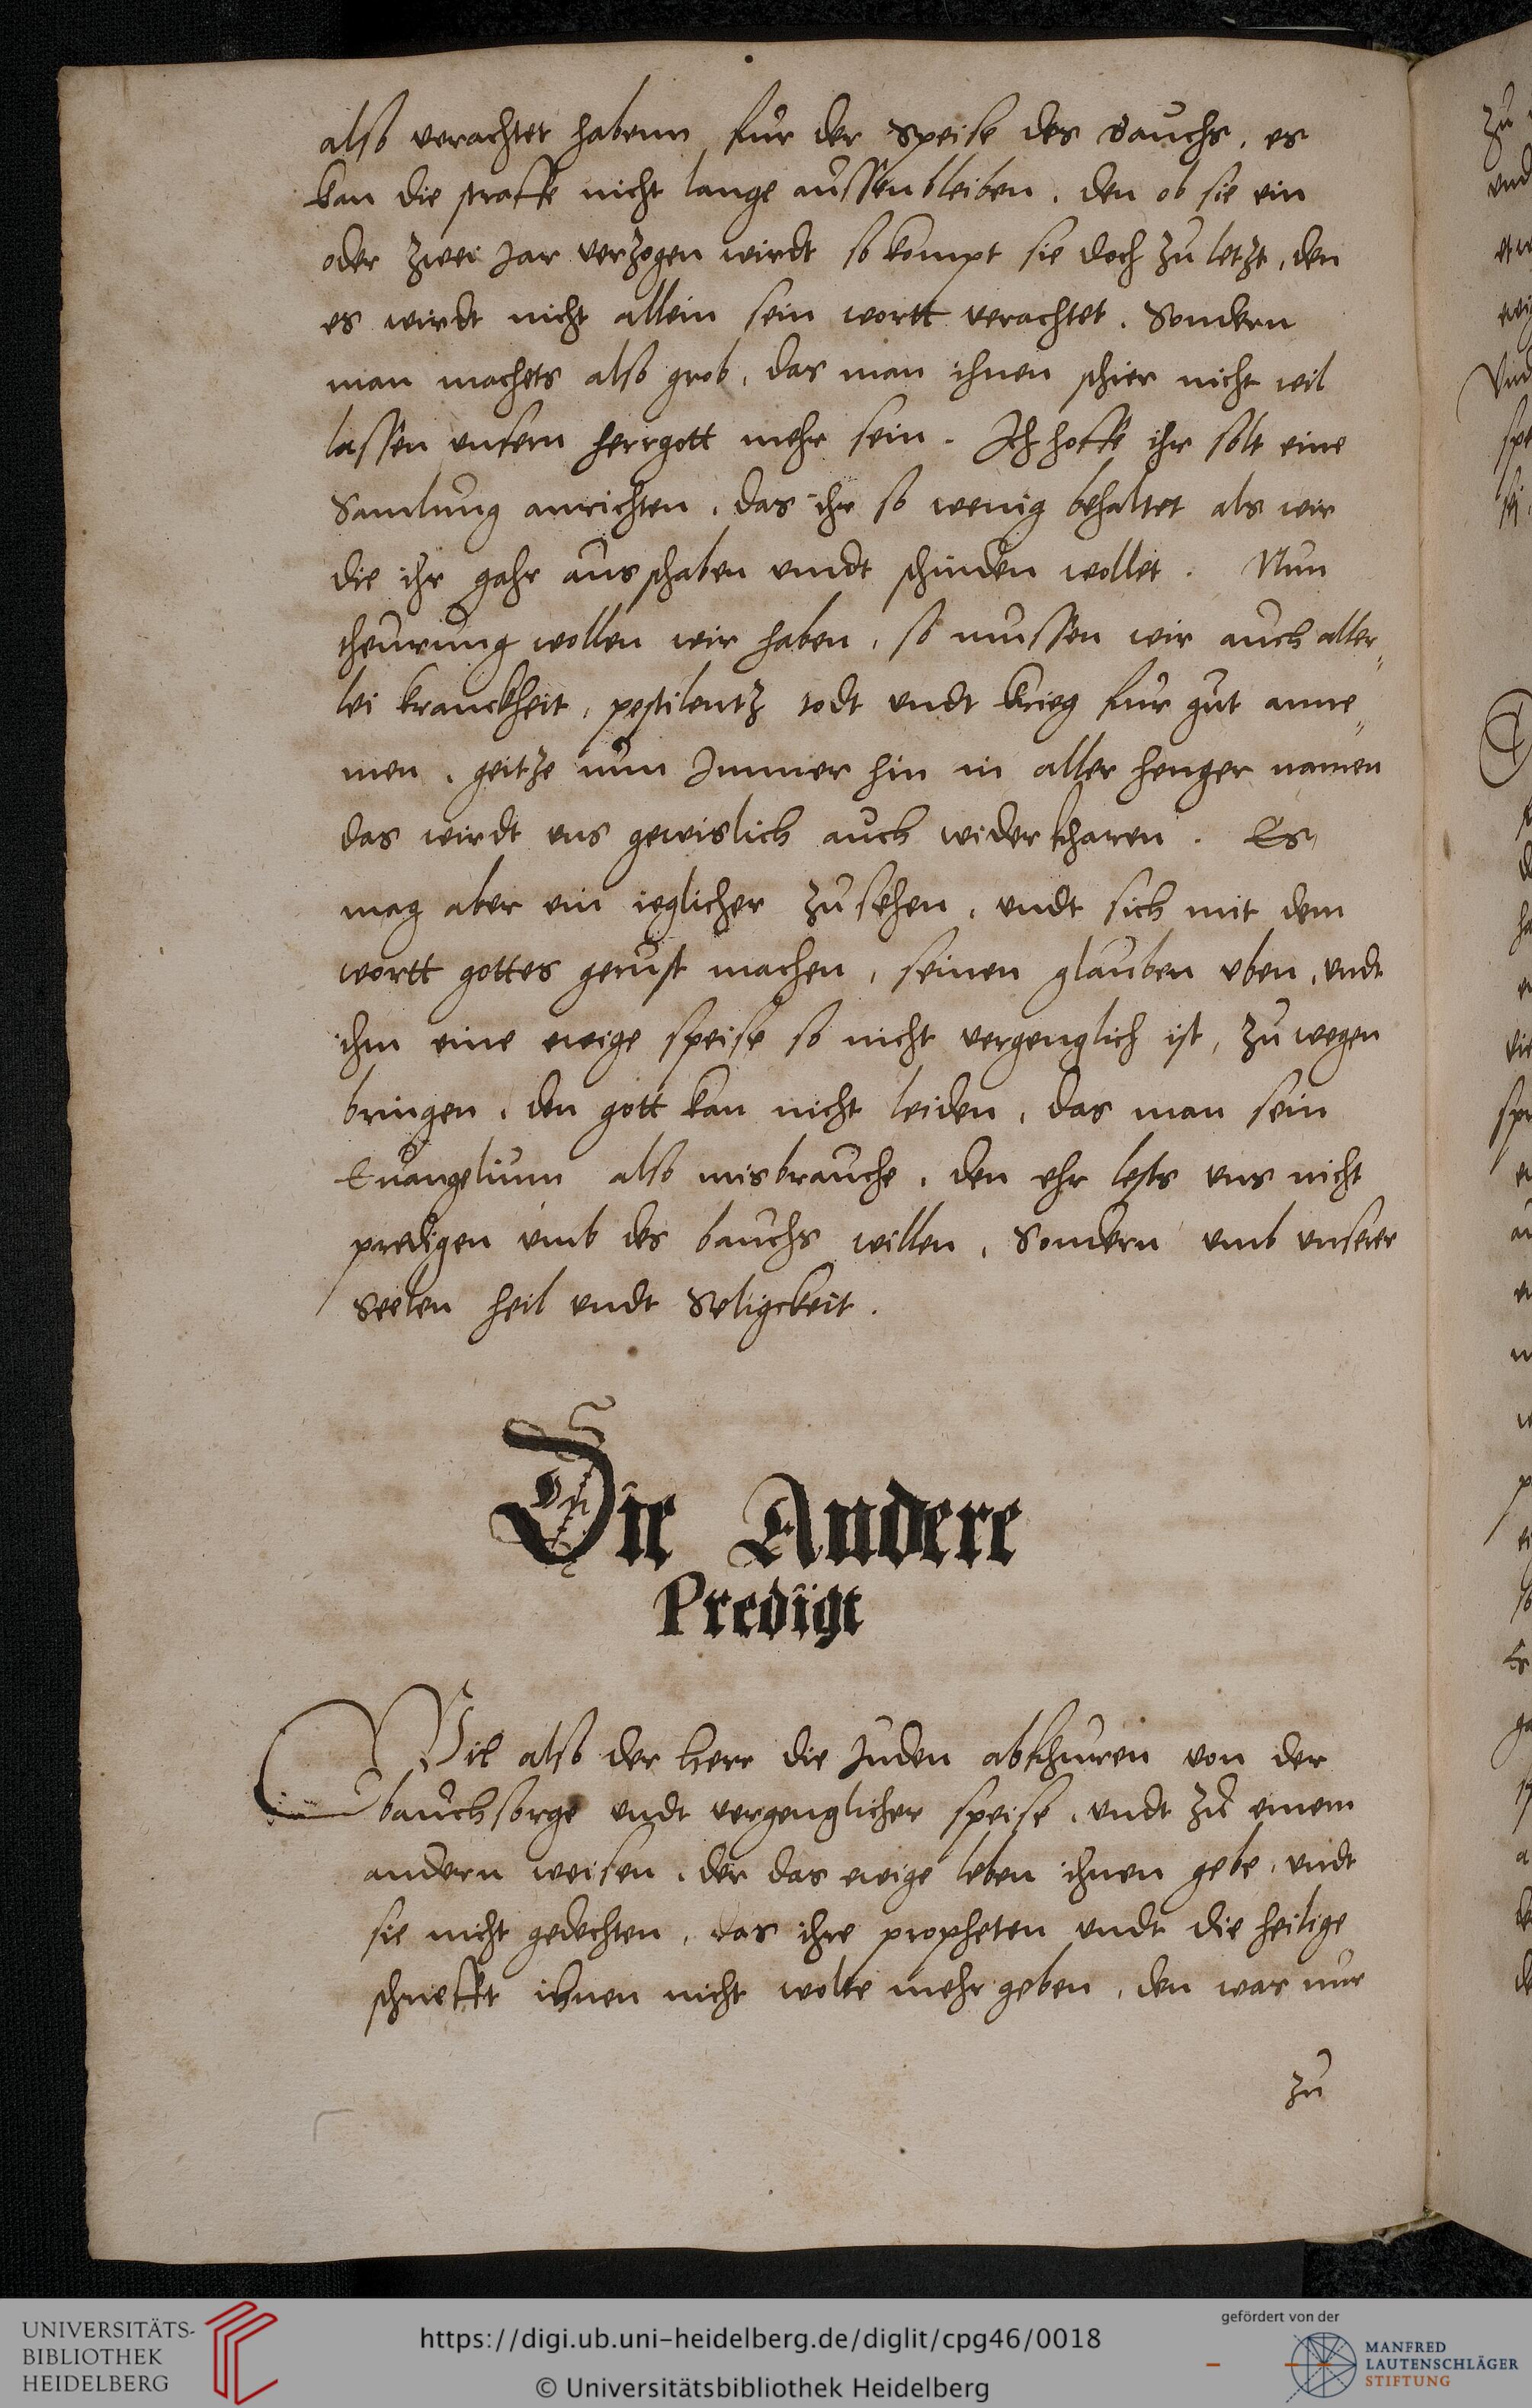 also verachtet habenn fur der Speise des bauchs, es
kan die straffe nicht lange aussenbleiben. den ob sie ein
oder zwei Jar verzogen wirdt so kompt sie doch zu letzt, den
es wirdt nicht allein sein wortt verachtet. Sondern
man machets also grob, das man ihnen schier nicht wil
lassen unsern herrgott mehr sein. Ich hoffe ihr solt eine
Samlung anrichten, das ihr so wenig behaltet als wir
die ihr gahr ausschaben undt schinden wollet. Nun
theurung wollen wir haben, so mussen wir auch aller„
lei kranckheit, pestilentz todt undt krieg fur gut anne„
men, geitze nun Jmmer hin in aller henger namen
das wirdt uns gewislich auch widerfharen. Es
mag aber ein ieglicher zusehen, undt sich mit dem
wortt gottes gerust machen, seinen glauben uben, undt
ihm eine ewige speise so nicht vergenglich ist, zu wegen
bringen, den gott kan nicht leiden, das man sein
Euangelium also misbrauche, den ehr lests uns nicht
predigen umb des bauchs willen, Sondern umb unserer
Seelen heil undt Seligckeit.
Die Andere
Predigt
Wil also der herr die Juden abfhuren von der
bauchsorge undt vergenglicher speise, undt zu einem
andern weisen, der das ewige leben ihnen gebe, undt
sie nicht gedechten, das ihre propheten undt die heilige
schriefft ihnen nicht wolte mehr geben, den war nur
zu
UNIVERSITÄTS-
BIBLIOTHEK
HEIDELBERG
https://digi.ub.uni-heidelberg.de/diglit/cpg46/0018
© Universitätsbibliothek Heidelberg
gefördert von der
MANFRED
LAUTENSCHLÄGER
STIFTUNG